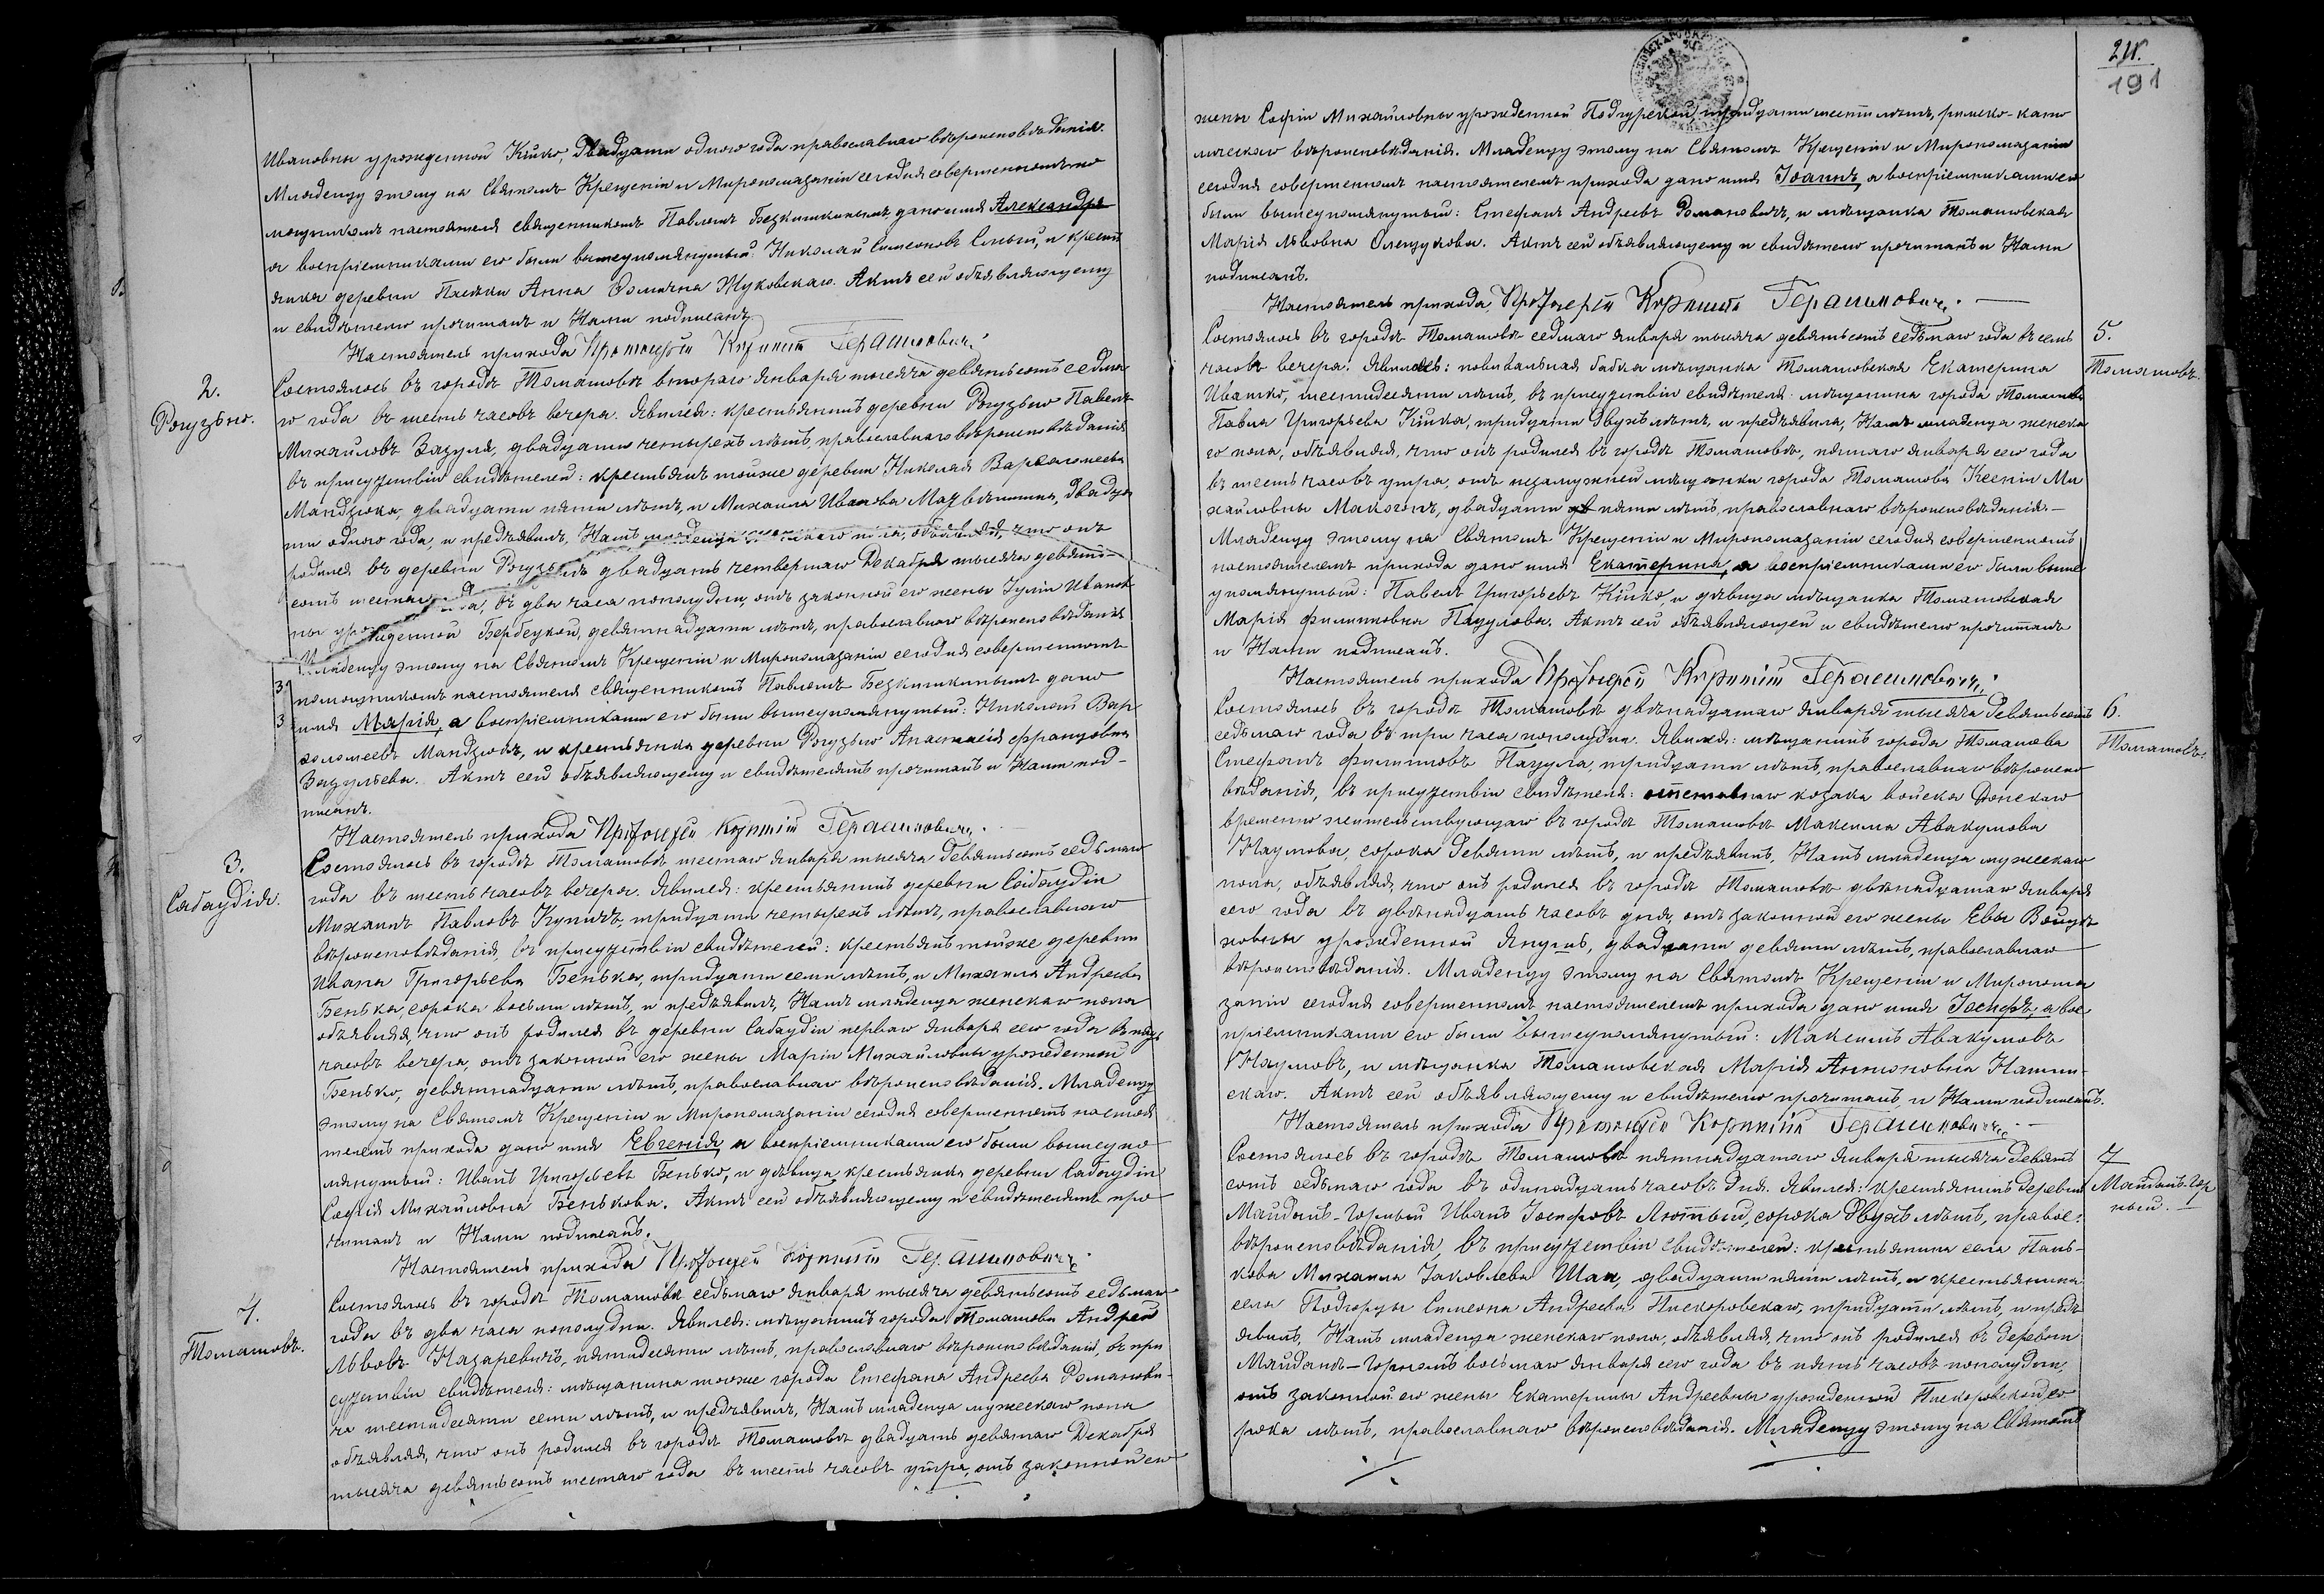 Ивановны урожденной Кицко, двадцати одного года православнаго вѣроисповѣданія.
Младенцу этому на Святомъ Крещеніи и Миропомазаніи сегодня совершенномъ по
мощникомъ настоятеля священникомъ Павломъ Безкишкинымъ дано имя Александръ
а воспріемниками его были вышеупомянутый: Николай Симеоновъ и крестя
янка деревни Анна Жуковскаго. Актъ сей объявляющему
и свидѣтелю прочитанъ и Нами подписанъ.
Настоятель прихода Протоіерей Корнилій Герасимовичъ.
2.
Рогузьно.
Состоялось въ городѣ Томашовѣ второго января тысяча девятьсотъ седьма
го года въ шесть часовъ вечера. Явился: крестьянинъ деревни Рогузьно Павелъ
Михайловъ Зазуля, двадцати четырехъ лѣтъ, православнаго вѣроисповѣданія
въ присутствіи свидѣтелей: крестьянъ тойже деревни Николая Варѳоломеева
Мандзюка, двадцати пяти лѣтъ, и Михаила Иванова двадца
ти одного года, и предъявилъ Намъ младенца женскаго пола, объявляя, что онъ
родился въ деревни Рогузьнѣ двадцать четвертаго Декабря тысяча девять-
сотъ шестаго года, въ два часа пополудни, отъ законной его жены Іуліи Иванов
ны урожденной Бербецкой, девятнадцати лѣтъ, православнаго вѣроисповѣданія
Младенцу этому на Святомъ Крещеніи и Миропомазаніи сегодня совершенномъ
помощникомъ настоятеля священникомъ Павломъ Безкишкинымъ дано
имя Марія, а воспріемниками его были вышеупомянутый: Николай Вар
ѳоломеевъ Мандзюкъ, и крестьянка деревни Рогузьно Анастасія Францовна
Зазульева. Актъ сей объявляющему и свидѣтелямъ прочитанъ и Нами под-
писанъ.
Настоятель прихода Протоіерей Корнилій Герасимовичъ.
3.
Сабаудія.
Состоялось въ городѣ Томашовѣ шестаго января тысяча девятьсотъ седьмаго
года въ шесть часовъ вечера. Явился: крестьянинъ деревни Сабаудіи
Михаилъ Павловъ Купичъ, тридцати четырехъ лѣтъ, православнаго
вѣроисповѣданія, въ присутствіи свидѣтелей: крестьянъ тойже деревни
Ивана Григорьева Бенька, тридцати семи лѣтъ, и Михаила Андреева
Бенька, сорока восьми лѣтъ, и предъявилъ, Намъ младенца женскаго пола
объявляя, что онъ родился въ деревни Сабаудіи перваго января сего года въ пять
часовъ вечера, отъ законной его жены Маріи Михайловны урожденной
Бенько, девятнадцати лѣтъ, православнаго вѣроисповѣданія. Младенцу
этому на Святомъ Крещеніи и Миропомазаніи сегодня совершенномъ настоя
телемъ прихода дано имя Евгенія, а воспріемниками его были вышеупо
мянутый: Иванъ Григорьевъ Бенько, и дѣвица крестьянка деревни Сабаудіи
Софія Михайловна Бенькова. Актъ сей объявляющему и свидѣтелямъ про
читанъ и Нами подписанъ.
Настоятель прихода Протоіерей Корнилій Герасимовичъ.
4.
Томашовъ.
Состоялось въ городѣ Томашовѣ седьмаго января тысяча девятьсотъ седьмаго
года въ два часа пополудни. Явился: мѣщанинъ города Томашова Андрей
Львовъ Назаревичъ, пятидесяти лѣтъ, православнаго вѣроисповѣданія, въ при
сутствіи свидѣтеля: мѣщанина тогоже города Стефана Андреева Романови-
ча шестидесяти семи лѣтъ, и предъявилъ, Намъ младенца мужескаго пола
объявляя, что онъ родился въ городѣ Томашовѣ двадцать девятаго Декабря
тысяча девятьсотъ шестаго года въ шесть часовъ утра, отъ законной его
191
жены Софіи Михайловны урожденной Подгурской, тридцати шести лѣтъ, римско-като
лическаго вѣроисповѣданія. Младенцу этому на Святомъ Крещеніи и Миропомазаніи
сегодня совершенномъ настоятелемъ прихода дано имя Іоаннъ, а воспріемниками его
были вышеупомянутый: Стефанъ Андреевъ Романовичъ, и мѣщанка Томашовская
Марія Львовна Олещукова. Актъ сей объявляющему и свидѣтелю прочитанъ и Нами
подписанъ.
Настоятель прихода, Протоіерей Корнилій Герасимовичъ.
5.
Томашовъ.
Состоялось въ городѣ Томашовѣ седмаго января тысяча девятьсотъ седьмаго года въ семь
часовъ вечера. Явилась: повивальная бабка мѣщанка Томашовская Екатерина
Ивашко, шестидесяти лѣтъ, въ присутствіи свидѣтеля: мѣщанина города Томашова
Павла Григорьева Кицка, тридцати двухъ лѣтъ, и предъявила, Намъ младенца женска
го пола, объявляя, что онъ родился въ городѣ Томашовѣ, пятаго января сего года
въ шесть часовъ утра, отъ незамужней мѣщанки города Томашова Ксеніи Ми
хайловны Макогонъ, двадцати пяти лѣтъ, православнаго вѣроисповѣданія.—
Младенцу этому на Святомъ Крещеніи и Миропомазаніи сегодня совершенномъ
настоятелемъ прихода дано имя Екатерина, а воспріемниками его были выше
упомянутый: Павелъ Григорьевъ Кицко, и дѣвица мѣщанка Томашовская
Марія Филипповна Пацулова. Актъ сей объявляющей и свидѣтелю прочитанъ
и Нами подписанъ.
Настоятель прихода Протоіерей Корнилій Герасимовичъ.
6.
Томашовъ.
Состоялось въ городѣ Томашовѣ двѣнадцатаго января тысяча девятьсотъ
седьмаго года въ три часа пополудни. Явился: мѣщанинъ города Томашова
Стефанъ Филипповъ Пацула, тридцати лѣтъ, православнаго вѣроиспо
вѣданія, въ присутствіи свидѣтеля: отставнаго козака войска Донскаго
временно жительствующаго въ городѣ Томашовѣ Максима Авакумова
Наумова, сорока девяти лѣтъ, и предъявилъ, Намъ младенца мужескаго
пола, объявляя, что онъ родился въ городѣ Томашовѣ двѣнадцатаго января
сего года въ двѣнадцать часовъ дня, отъ законной его жены Евы Войцѣ
ховны урожденной Янушъ, двадцати девяти лѣтъ, православнаго
вѣроисповѣданія. Младенцу этому на Святомъ Крещеніи и Миропома
заніи сегодня совершенномъ настоятелемъ прихода дано имя Іосифъ, а вос
пріемниками его были вышеупомянутый: Максимъ Авакумовъ
Наумовъ, и мѣщанка Томашовская Марія Антоновна
скаго. Актъ сей объявляющему и свидѣтелю прочитанъ, и Нами подписанъ.
Настоятель прихода Протоіерей Корнилій Герасимовичъ.
7
Майданъ-Гор
ный.
Состоялось въ городѣ Томашовѣ пятнадцатаго января тысяча девять
сотъ седьмаго года въ одинадцать часовъ дня. Явился: крестьянинъ деревни
Майданъ-Горный Иванъ Іосифовъ Лютый, сорока двухъ лѣтъ, правос:
вѣроисповѣданія, въ присутствіи свидѣтелей: крестьянина села Пань-
кова Михаила Іаковлева Шак, двадцати пяти лѣтъ, и крестьянина
села Подгорцы Симеона Андреева Пискоровскаго, тридцати лѣтъ, и предъ
явилъ, Намъ младенца женскаго пола, объявляя, что онъ родился въ деревни
Майданъ-Горномъ восьмаго января сего года въ пять часовъ пополудни,
отъ законной его жены Екатерины Андреевны урожденной Пискоровской, со
рока лѣтъ, православнаго вѣроисповѣданія. Младенцу этому на Святомъ